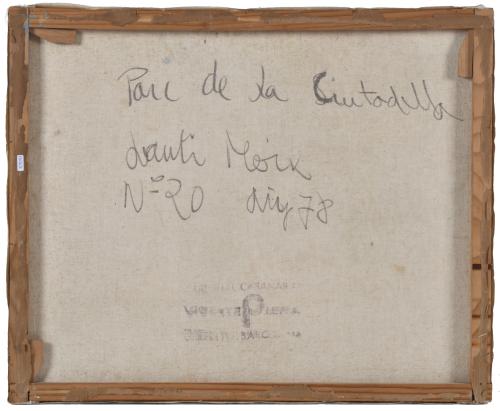 Parc de la Ciutadella
Santi Moix
Nº 20 Juny 78
VICENTE PIERA
P
BARCELONA